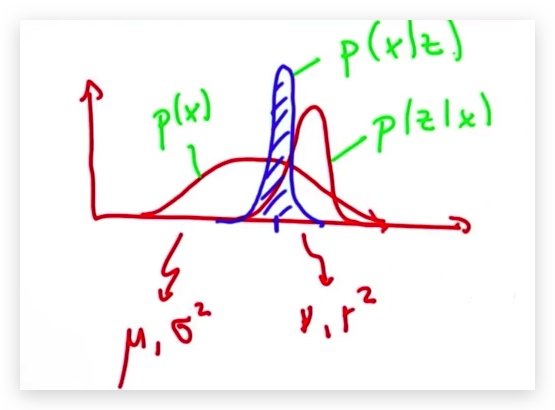 p(x|z)
p(x)
p(z|x)
μ, σ²
ν, r²